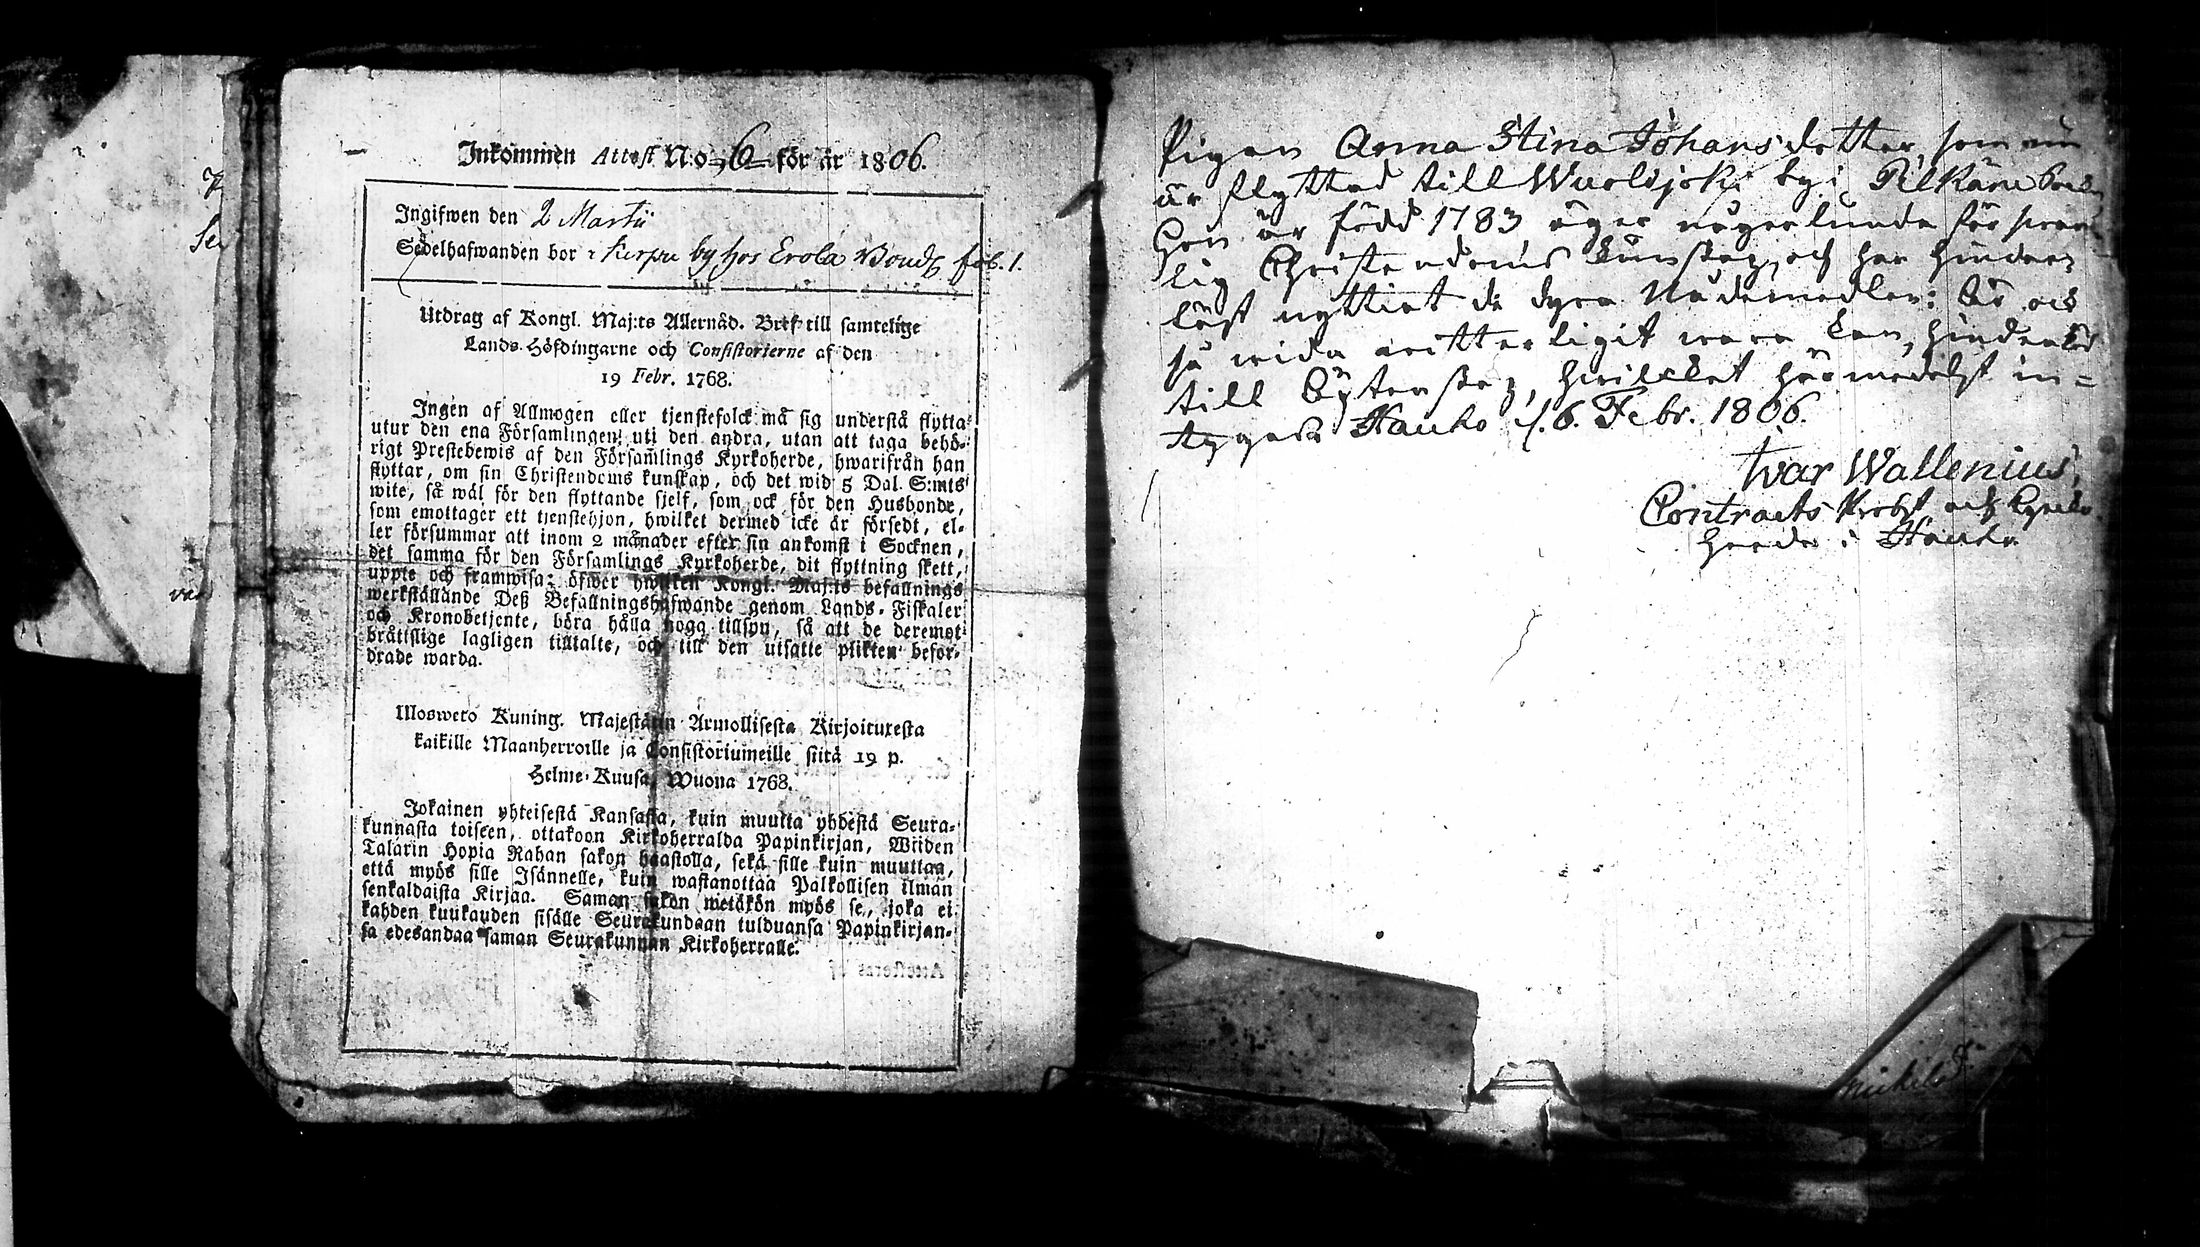 Inkommen Attest N:o 6 för år 1806.
Ingifwen den 2 Martii
Sedelhafwanden bor i Kerpu by hos Erola Bonde
Utdrag af Kongl. Maj:ts Allernåd. Bref till samtelige
Lands-Höfdingarne och Consistorierne af den
19 Febr. 1768.
Ingen af Allmogen eller tjenstefolck må sig understå flytta
utur den ena Församlingen uti den andra, utan att taga behö-
rigt Prestebewis af den Församlings Kyrkoherde, hwarifrån han
flyttar, om sin Christendoms kunskap, och det wid 5 Dal. S:mts
wite, så wäl för den flyttande sjelf, som ock för den Husbonde,
som emottager ett tjenstehjon, hwilket dermed icke är försedt, el-
ler försummar att inom 2 månader efter sin ankomst i Socknen,
det samma för den Församlings Kyrkoherde, dit flyttning skett,
uppte och framwisa; öfwer hwilken Kongl. Maj:ts befallnings
werkställande Deß Befallningshafwande genom Lands-Fiskaler
och Kronobetjente, böra hålla noga tillsyn, så att de deremot
bråtislige lagligen tilltalte, och till den utsatte plikten befor-
drade warda.
Uloswero Kuning. Majestätin Armollisesta Kirjoituxesta
kaikille Maanherroille ja Consistoriumeille siitä 19 p.
Helme-Kuusa, Wuona 1768.
Jokainen yhteisestä Kansasta, kuin muutta yhdestä Seura-
kunnasta toiseen, ottakoon Kirkoherralda Papinkirjan, Wiiden
Talarin Hopia Rahan sakon haastolla, sekä sille kuin muuttaa,
että myös sille Isännelle, kuin wastanottaa Palkollisen ilman
senkaldaista Kirjaa. Saman sakon wetäkön myös se, joka ei
kahden kuukauden sisälle Seurakundaan tulduansa Papinkirjan-
sa edesandaa saman Seurakunnan Kirkoherralle.
Pigan Anna Stina Johansdotter, som nu
är flyttad till Wuolijoki by i Pelkäne
Hon är född 1783 äger någorlunda
lig Christendoms kunskap, och har hinder-
löst nyttiat de dyra Nådemedlen: är ock
så wida witterligit wara kan, hinderlös
till Äktenskap, hwilcket härmedelst in-
tygas Hauho d. 6. Febr. 1806.
Ivar Wallenius,
Contracts Probst och Kyrko
Herde i Hauho